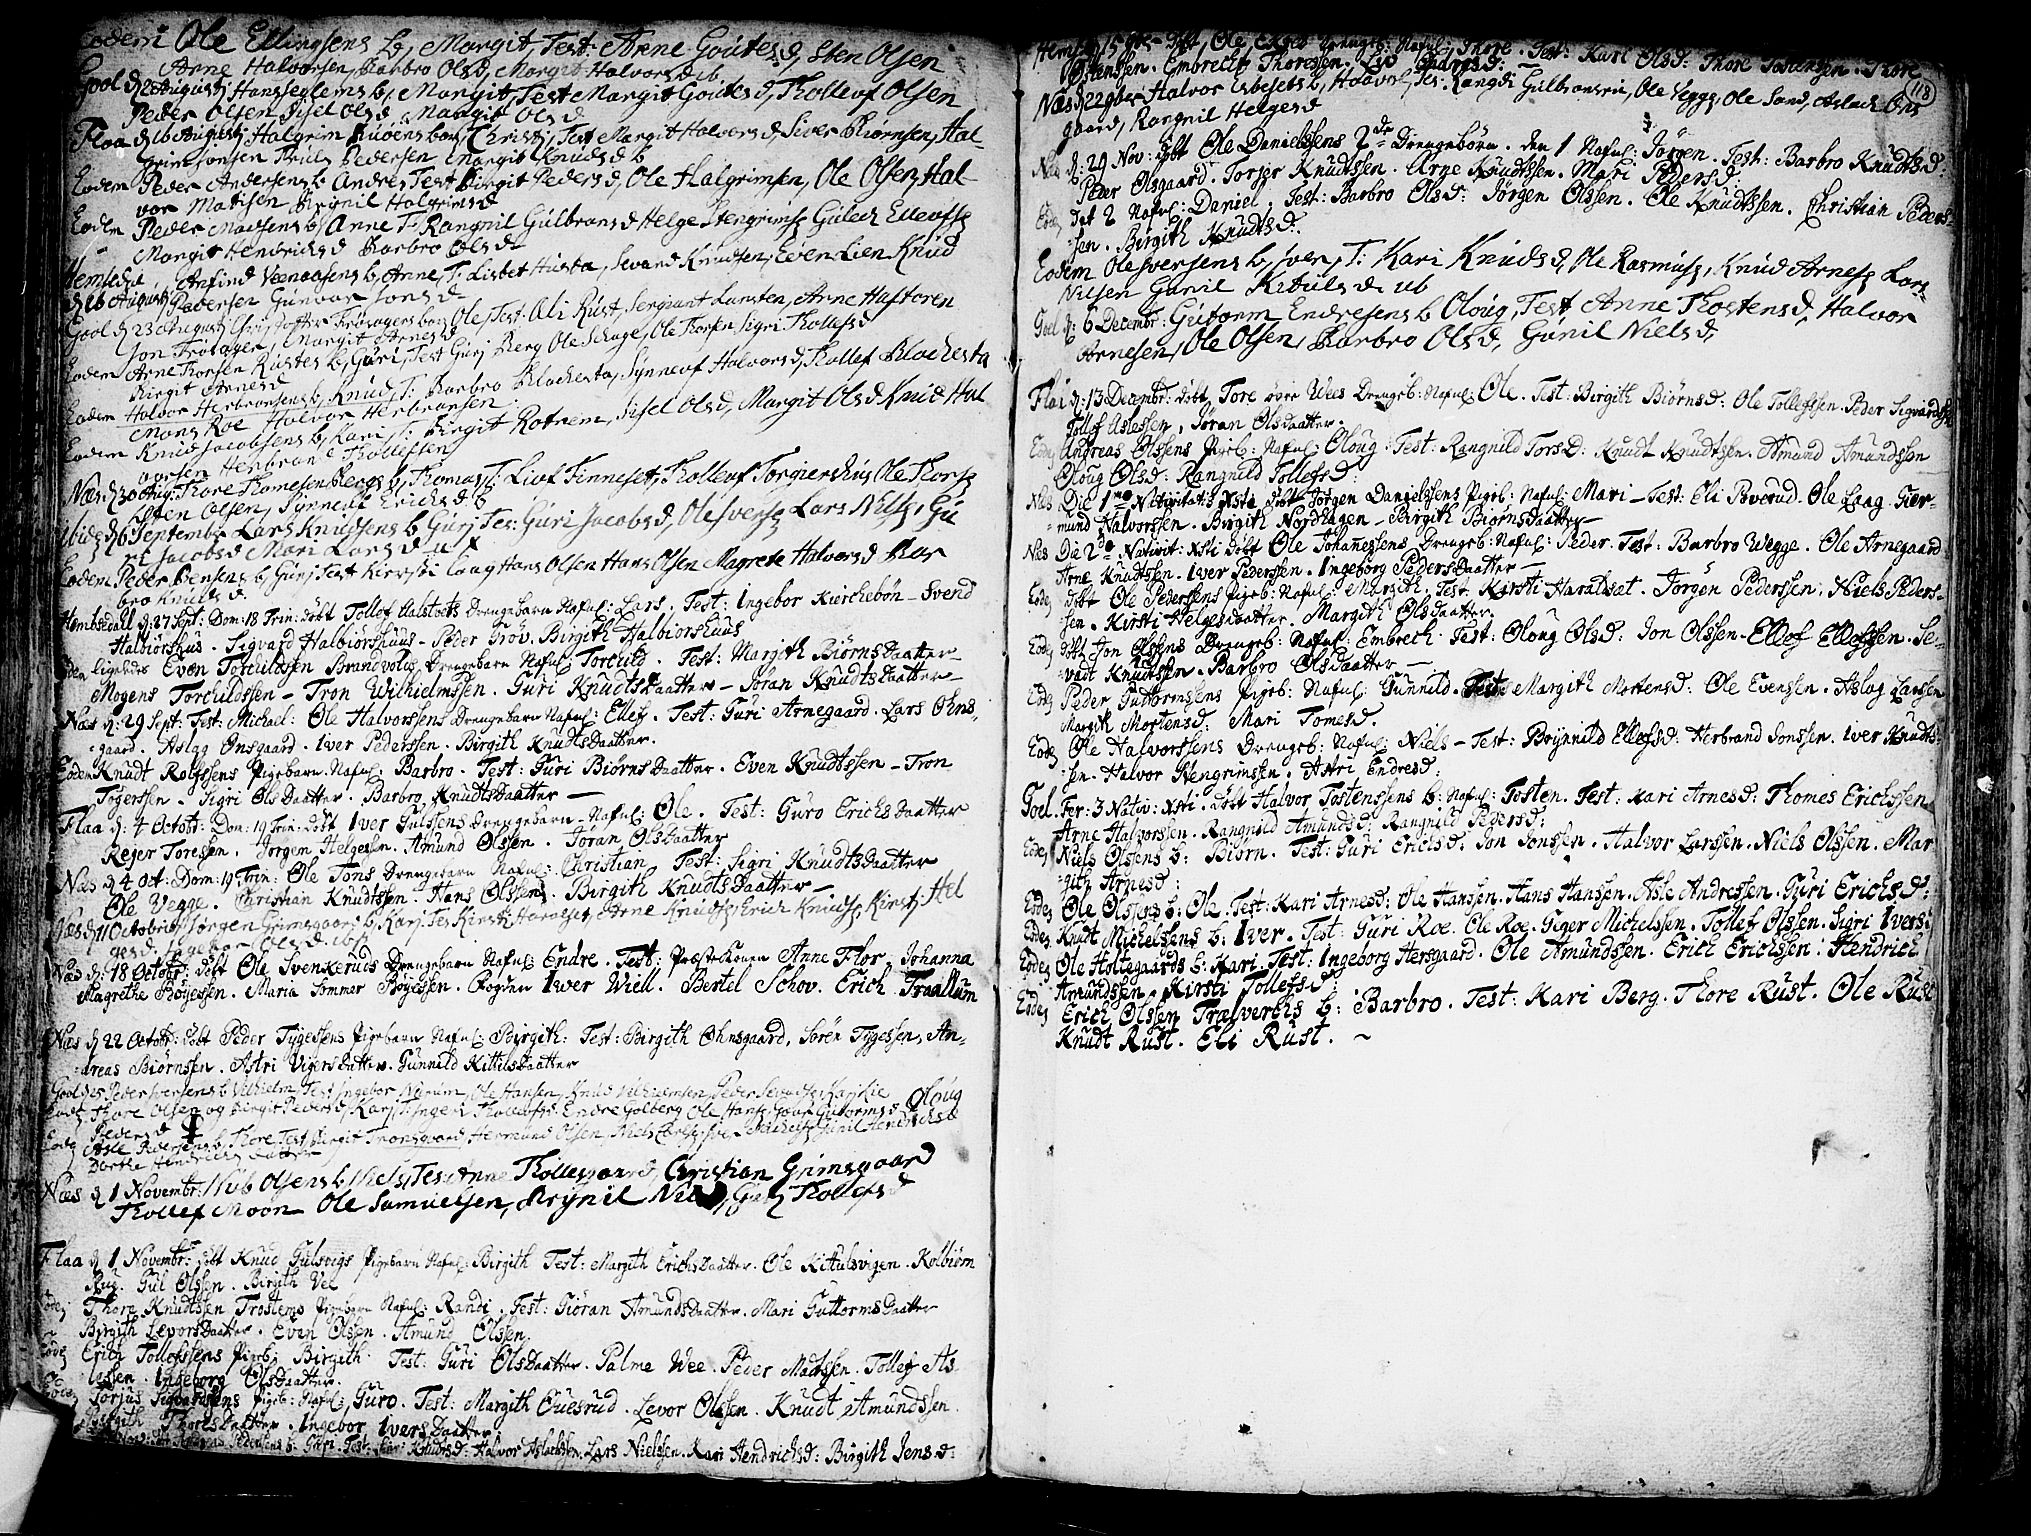 Eodem Ole Ellingsens b, Margit, Test: Anne Goutesd, Sten Olsen
Arne Halvorsen, Barbro Olsd, Margit Halvorsd ub
Gool d 2 Augustj Hans Seglems b, Margit, Test Margit Goutesd, Tholleuf Olsen
Peder Olsen Sisel Olsd, Margit Olsd
Flaa d 16 Augustj Halgrim barn Christj, Test Margit Halvorsd Siver Biørnsen, Hal-
grim Jonsen Truls Pedersen Margit Knudsd b
Eodem Peder Andersens b Andres Test Birgit Pedersd, Ole Halgrimsen, Ole Olsen Hal-
vor Madisen Brynil Halgrimsd
Eodem Peder Madsens b, Anne T Rangnil Gulbransd Helge Stengrims Gulech Elleufs
Margit Hendrichsd Barbro Olsd
Hemsedal, Anfind Veenaasens b, Anne T: Lisbet Husta, Sevand Knudsen, Even Lien Knud
d 16 Augustj Pedersen Gunvor Jonsd
Gool d 23 Augustj Christoffer Frøsagers barn Ole, Test: Ali Rust, Sergeant Lansten, Arne Haftoren
Jon Frøsager, Margit Arnesd
Eodem Arne Thorsen Rustes b, Guri, Test Gurj Berg Ole Schage, Ole Thorsen Sigri Thollefsd
Birgit Arnesd
Eodem Halvor Herbransens b, Knud T: Barbro Blachesta, Synneuf Halvorsd, Thollef Blachesta
Mons Roe Halvor Herbransen
Eodem Knud Jacobsens b, Kari, T: Birgit Rotnem, Sisel Olsd, Margit Olsd Knud Hal
vorsen Herbrand Thollefsen
Næs d 30 Aug: Thore Thomesen Bergs b, Thomas, T: Liuf Finneset, Tholleuf Torgiershus Ole Thors
Sten Olsen, Synneuf Erichsd b
Ibid d 6 Septembr Lars Knudsens b Gurj Tes: Guri Jacobsd, Ole Iversz Lars Nils, Gu
ri Jacobsd Mari Larsd u b
Eodem Peder Bensens b, Gurj Test Kirsti Laag Hans Olsen Hans Olsen Magrete Halvorsd Bar
bro Knudsd
Hembsedall d: 27 Sept: Dom: 18 Trin: døbt Tollof Halstvets Drengebarn Nafnl: Lars. Test: Ingebor Kierchebøn - Svend
Halbiørshus. Sigvard Halbiorshuus - Peder Grøv. Birgith Halbiorshuus
Eden ligeledes Even Torchildsen Brandvolds Drengebarn Nafnl: Torchild. Test: Margith Biørnsdaatter -
Mogens Torchildssen - Tron Wilhielmssen. Guri Knudtsdaatter - Joran Knudtsdaatter -
Næs d: 29 Sept: Test: Michael: Ole Halvorssens Drengebarn Nafnl: Ellef. Test: Guri Arnegaard. Lars Ohns-
gaard. Aslag Onsgaard. Iver Pederssen. Birgith Knudtsdaatter.
Eodem Knudt Rolfssens Pigebarn Nafnl: Barbro. Test: Guri Biørnsdaatter. Even Knudtssen - Tron
Togerssen - Sigri Olsdaatter. Barbro Knudtsdaatter -
Flaa d: 4 Octobr: Dom: 19 Trin: døbt Iver Gulssens Drengebarn - Nafnl: Ole. Test: Guro Erichsdaatter
Rejer Toresen. Jorgen Helgesen. Amund Olssen. Joran Olsdaatter
Næs d 4 Oct: Dom: 19 Trin: Ole Tons Drengebarn Nafnl: Christian. Test: Sigri Knudtsdaatter
Ole Vegge. Christian Knudtssen. Hans Olssen. Birgith Knudtsdaatter -
Næs d 11 Octobr Jørgen Grimsgaards b, Karj Tes Kirstj Haralset, Arne Knuds, Erich Knuds, Kirstj Hel
gesd, Ingebor Olsd ub
Næs d: 18 Octobr: døbt Ole Svenkeruds Drengebarn Nafnl: Endre. Test: Præstekonen Anne Flor, Johanna
Magrethe Boyessen. Maria Sommer Boyessen. Iwer Wiell. Bertel Schov. Erich Traallum
Næs d 22 Octobr: døbt Peder Tygessens Pigebarn Nafnl: Birgith: Test: Birgith Ohnsgaard, Sørén Tygessen, An-
dreas Biørnsen. Astri Vigersdatter. Gunnild Kittilsdaatter
Gool d 25 Peder Iversens b Wilhielm Test Ingebor Nærum, Ole Hansen, Knud Wilhielmsen Peder Karj Lie
Eod Thore Olsen og Birgit Pedersd, Karj T: Ingerj Thollefsd. Endre Golberg Ole Hans Guttorms Oloug
Pedersd
Eod Asle Pedersens b, Thore Test Birgit Tronsgaard, Hermund Olsen, Niels Lars, Iver Gunil Hendrichsd
Dorthe Hendrichsdaatter
Næs d 1 Novembr: Nub Olsens b, Niels, Tes: Anne Thollefgaard, Christian Grimsgaard
Thollef Moon Ole Samuelsen, Brynil Nielsd, Gurj Thollefsd
Flaa d 1 Novembr: døbt Knud Gulsvigs Pigebarn Nafnl: Birgith Test: Margith Erichsdaatter. Ole Kittulsvigen. Kolbiørn
Rug. Gul Olssen. Birgith Vel
Eode Thore Knudtssen Trostems Pigebarn Nafnl: Randi. Test: Giøran Amundsdaatter. Mari Guttormsdaatter
Birgith Levorsdaatter. Even Olssen. Amund Olssen.
Eode Erich Tollofssens Pigeb: Birgith Test: Guri Olsdaatter. Palme Wee. Peder Madssen. Tollef As
lessen. Ingeborg Olsdaatter.
Eode Torjus Sigvardsens Pigeb: Nafnl: Guro. Test: Margith Ouesrud. Levor Olssen. Knudt Amundssen.
Birgith Thoresdaatter. Ingebor Iversdaatter.
Pederssens b: Guri. Test: Kari Knudtsd: Halvor Aslachssen. Lars Nielssen. Kari Hendrichsd: Birgith Jensd:
118
Hemsed: 15 9br døbt, Ole Drengeb: Nafnl: Thore. Test: Kari Olsd: Thore Tostensen. Thore
Østenssen. Embrecht Thoressen. Liv
Næs d 22 9br Halvor b, Haavel, Tes. Rangdi Gulbransru, Ole Vegge, Ole Sand, Aslach Ons
gaard, Rangnil Helgesd
Næs d: 29 Nov: døbt Ole Danielssens 2de Drengebørn. den 1 Nafnl: Jörgen. Test: Barbro Knudtsd:
Peder Olsgaard. Torger Knudtssen. Arne Knudtssen. Mari Pedersd:
Eode det 2 Nafnl: Daniel. Test: Barbro Olsd: Jörgen Olssen. Ole Knudtssen. Christian Peders-
sen. Birgith Knudtsd:
Eodem Ole Iversens b, Iver, T: Kari Knudsd, Ole Rasmus, Knud Arnes Lars
Nilsen Gunil Kitulsd ub
Goel d: 6 Decembr: Gutorm Endresens b Oloug, Test Anne Thostensd, Halvor
Arnesen, Ole Olsen, Barbro Olsd, Gunil Nielsd,
Flaa d: 13 Decembr: døbt Tore øvre Wees Drengeb: Nafnl: Ole. Test: Birgith Biörnsd: Ole Tollefssen. Peder Sigvardss
Tollof Aslessen, Jöran Olsdaatter.
Eode Andreas Olssens Pigeb: Nafnl: Oloug: Test: Rangnild Torsd: Knudt Knudtssen. Amund Amundssen
Oloug Olsd: Rangnild Tollefsd:
Nes Die 1me Nativitatis Xsti døbt Jörgen Danielssens Pigeb: Nafnl: Mari - Test: Eli Poverud. Ole Laag. Gier-
mund Halvorssen. Birgith Nordhagen - Birgith Biørnsdaatter -
Nes Die 2do Nativit: Xsti døbt Ole Johanessens Drengeb: Nafnl: Peder. Test: Barbro Wegge. Ole Arnegaard
Arne Knudtssen. Iver Pederssen. Ingeborg Pedersdaatter -
Eode døbt Ole Pedersens Pigeb: Nafnl: Margith. Test: Kirsti Haraldsat. Jørgen Pederssen. Niels Peders-
sen. Kirsti Helgesdaatter. Margith Olsdaatter.
Eode døbt Jon Olssens Drengeb: Nafnl: Embrech. Test: Oloug Olsd: Jon Olssen - Ellef Ellefssen. Se-
vadt Knudtssen. Barbro Olsdaatter -
Eode Peder Guttormsens Pigeb: Nafnl: Gunnild. Test: Margith Mortensd: Ole Evenssen. Aslag Larssen
Margith Mortensd: Mari Tomesd.
Eode Ole Halvorssens Drengeb: Nafnl: Niels - Test: Brynnild Ellefsd: Herbrand Jonssen. Iver Knudts-
sen. Halvor Stengrimssen. Astri Endresd:
Goel. Fer: 3 Nativ: Xsti. døbt Halvor Tostenssens b: Nafnl: Tosten. Test: Kari Arnesd: Thomes Erichssen
Arne Halvorssen. Rangnild Amundsd: Rangnild Pedersd:
Eode Niels Olssens b: Biørn. Test: Guri Erichsd: Jon Jonssen. Halvor Larssen. Niels Olssen. Mar
gith Arnesd:
Eode Ole Olssens b: Ole. Test: Kari Arnesd: Ole Hanssen. Hans Hanssen. Asle Andressen. Guri Erichsd:
Eode Knudt Michelssens b: Iver. Test: Guri Roe. Ole Roe. Geger Michelssen. Tollef Olssen. Sigri Ivers:
Eode Ole Holtegaards b: Kari. Test: Ingeborg Hersgaard. Ole Amundssen. Erich Erichssen. Hendrich
Amundssen. Kirsti Tollefsd:
Eode Erich Olssen Trælverchs b: Barbro. Test: Kari Berg. Thore Rust. Ole Rust
Knudt Rust. Eli Rust. -